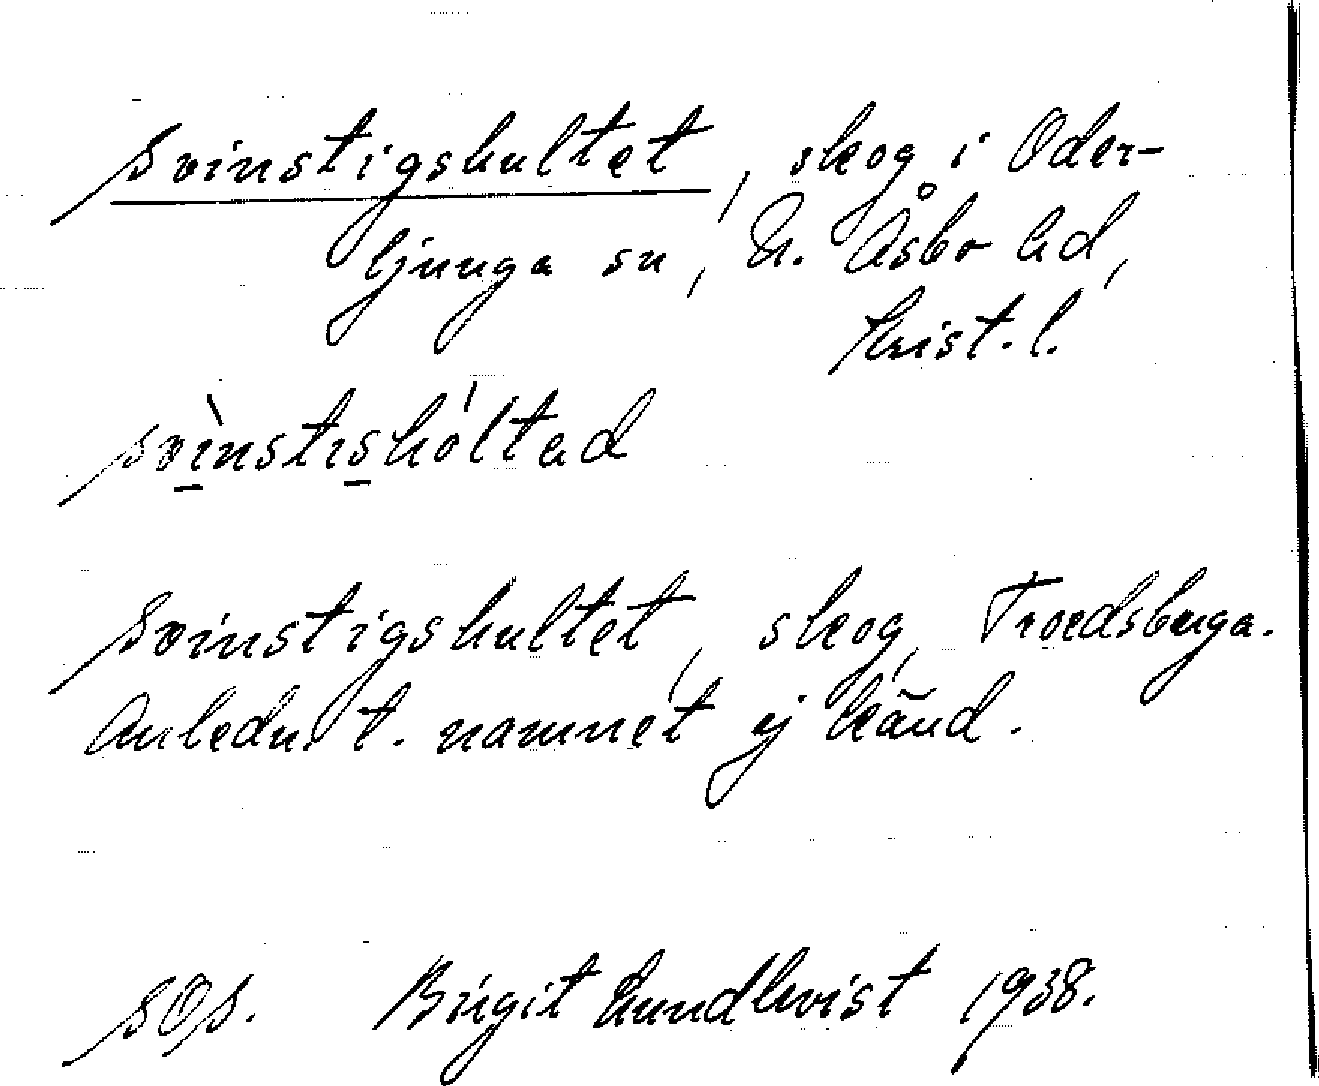 Svinstigshultet, skog i Oder-
ljunga sn, N. Åsbo hd,
Krist. l.
svinstishóltad
Svinstigshultet, skog, Troedsberga.
Anledn. t. namnet ej känd.
SOS. Birgit Lundkvist 1938.